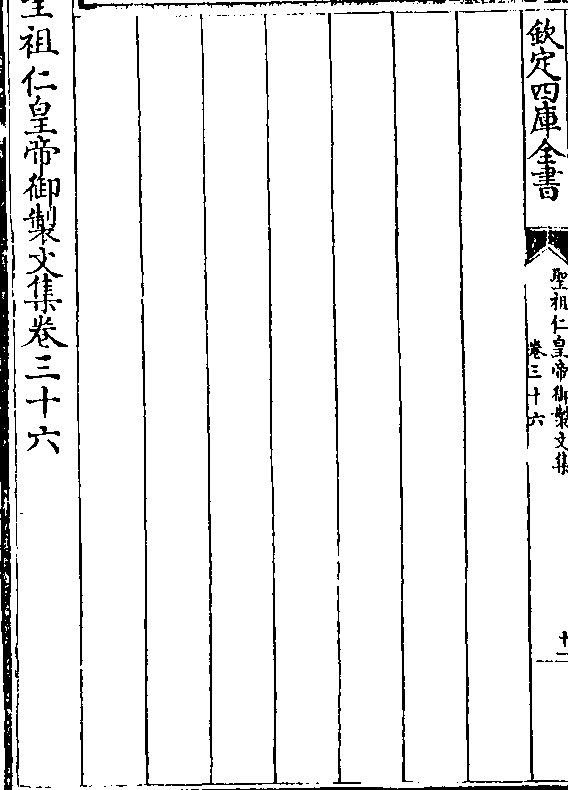 欽定四庫全書
聖祖仁皇帝御製文集
卷三十六
十一
聖祖仁皇帝御製文集卷三十六